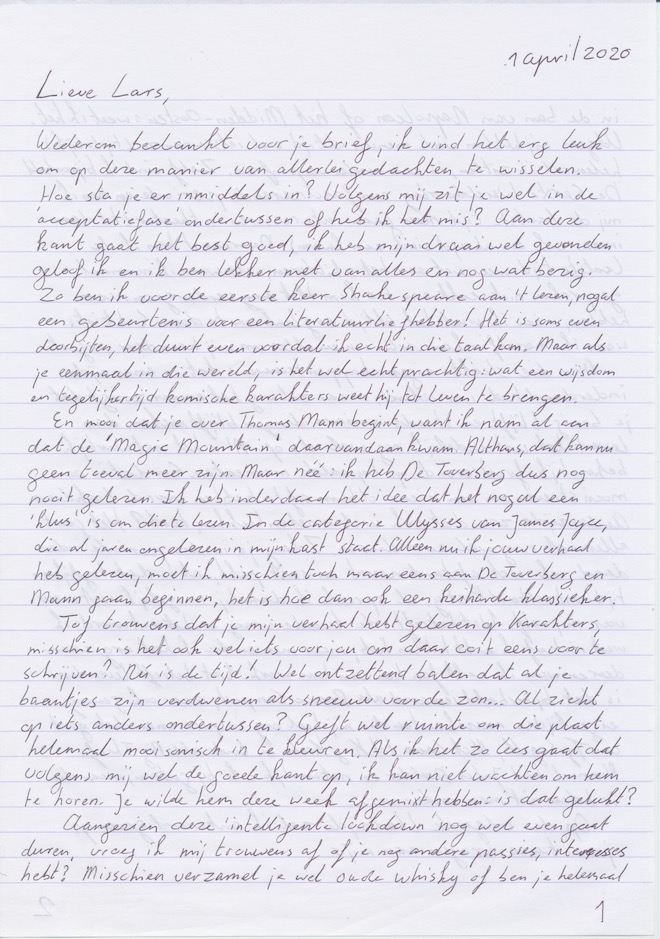 1 april 2020
Lieve Lars,
Wederom bedankt voor je brief, ik vind het erg leuk
om op deze manier van allerlei gedachten te wisselen.
Hoe sta je er inmiddels in? Volgens mij zit je wel in de
'acceptatiefase' ondertussen of heb ik het mis? Aan deze
kant gaat het best goed, ik heb mijn draai wel gevonden
geloof ik en ik ben lekker met van alles en nog wat bezig.
Zo ben ik voor de eerste keer Shakespeare aan 't lezen, nogal
een gebeurtenis voor een literatuurliefhebber! Het is soms even
doorbijten, het duurt even voordat ik echt in die taal kom. Maar als
je eenmaal in die wereld, is het wel echt prachtig: wat een wijsdom
en tegelijkertijd komische karakters weet hij tot leven te brengen.
En mooi dat je over Thomas Mann begint, want ik nam al aan
dat de 'Magic Mountain' daar vandaan kwam. Althans, dat kan nu
geen toeval meer zijn. Maar néé: ik heb De Toverberg dus nog
nooit gelezen. Ik heb inderdaad het idee dat het nogal een
'klus' is om die te lezen. In de categorie Ulysses van James Joyce,
die al jaren ongelezen in mijn kast staat. Alleen nu ik jouw verhaal
heb gelezen, moet ik misschien toch maar eens aan De Toverberg en
Mann gaan beginnen, het is hoe dan ook een keiharde klassieker.
Tof trouwens dat je mijn verhaal hebt gelezen op Karakters,
misschien is het ook wel iets voor jou om daar ooit eens voor te
schrijven? Nú is de tijd! Wel ontzettend balen dat al je
baantjes zijn verdwenen als sneeuw voor de zon... Al zicht
op iets anders ondertussen? Geeft wel ruimte om die plaat
helemaal mooi sonisch in te kleuren. Als ik het zo lees gaat dat
volgens mij wel de goede kant op, ik kan niet wachten om hem
te horen. Je wilde hem deze week afgemixt hebben: is dat gelukt?
Aangezien deze 'intelligente lockdown' nog wel even gaat
duren, vroeg ik mij trouwens af of je nog andere passies, interesses
hebt? Misschien verzamel je wel oude whisky of ben je helemaal
1